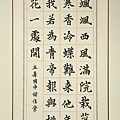 颯颯西風滿院栽蕊
寒香冷蝶難來他年
我若為青帝報與桃
花一處開